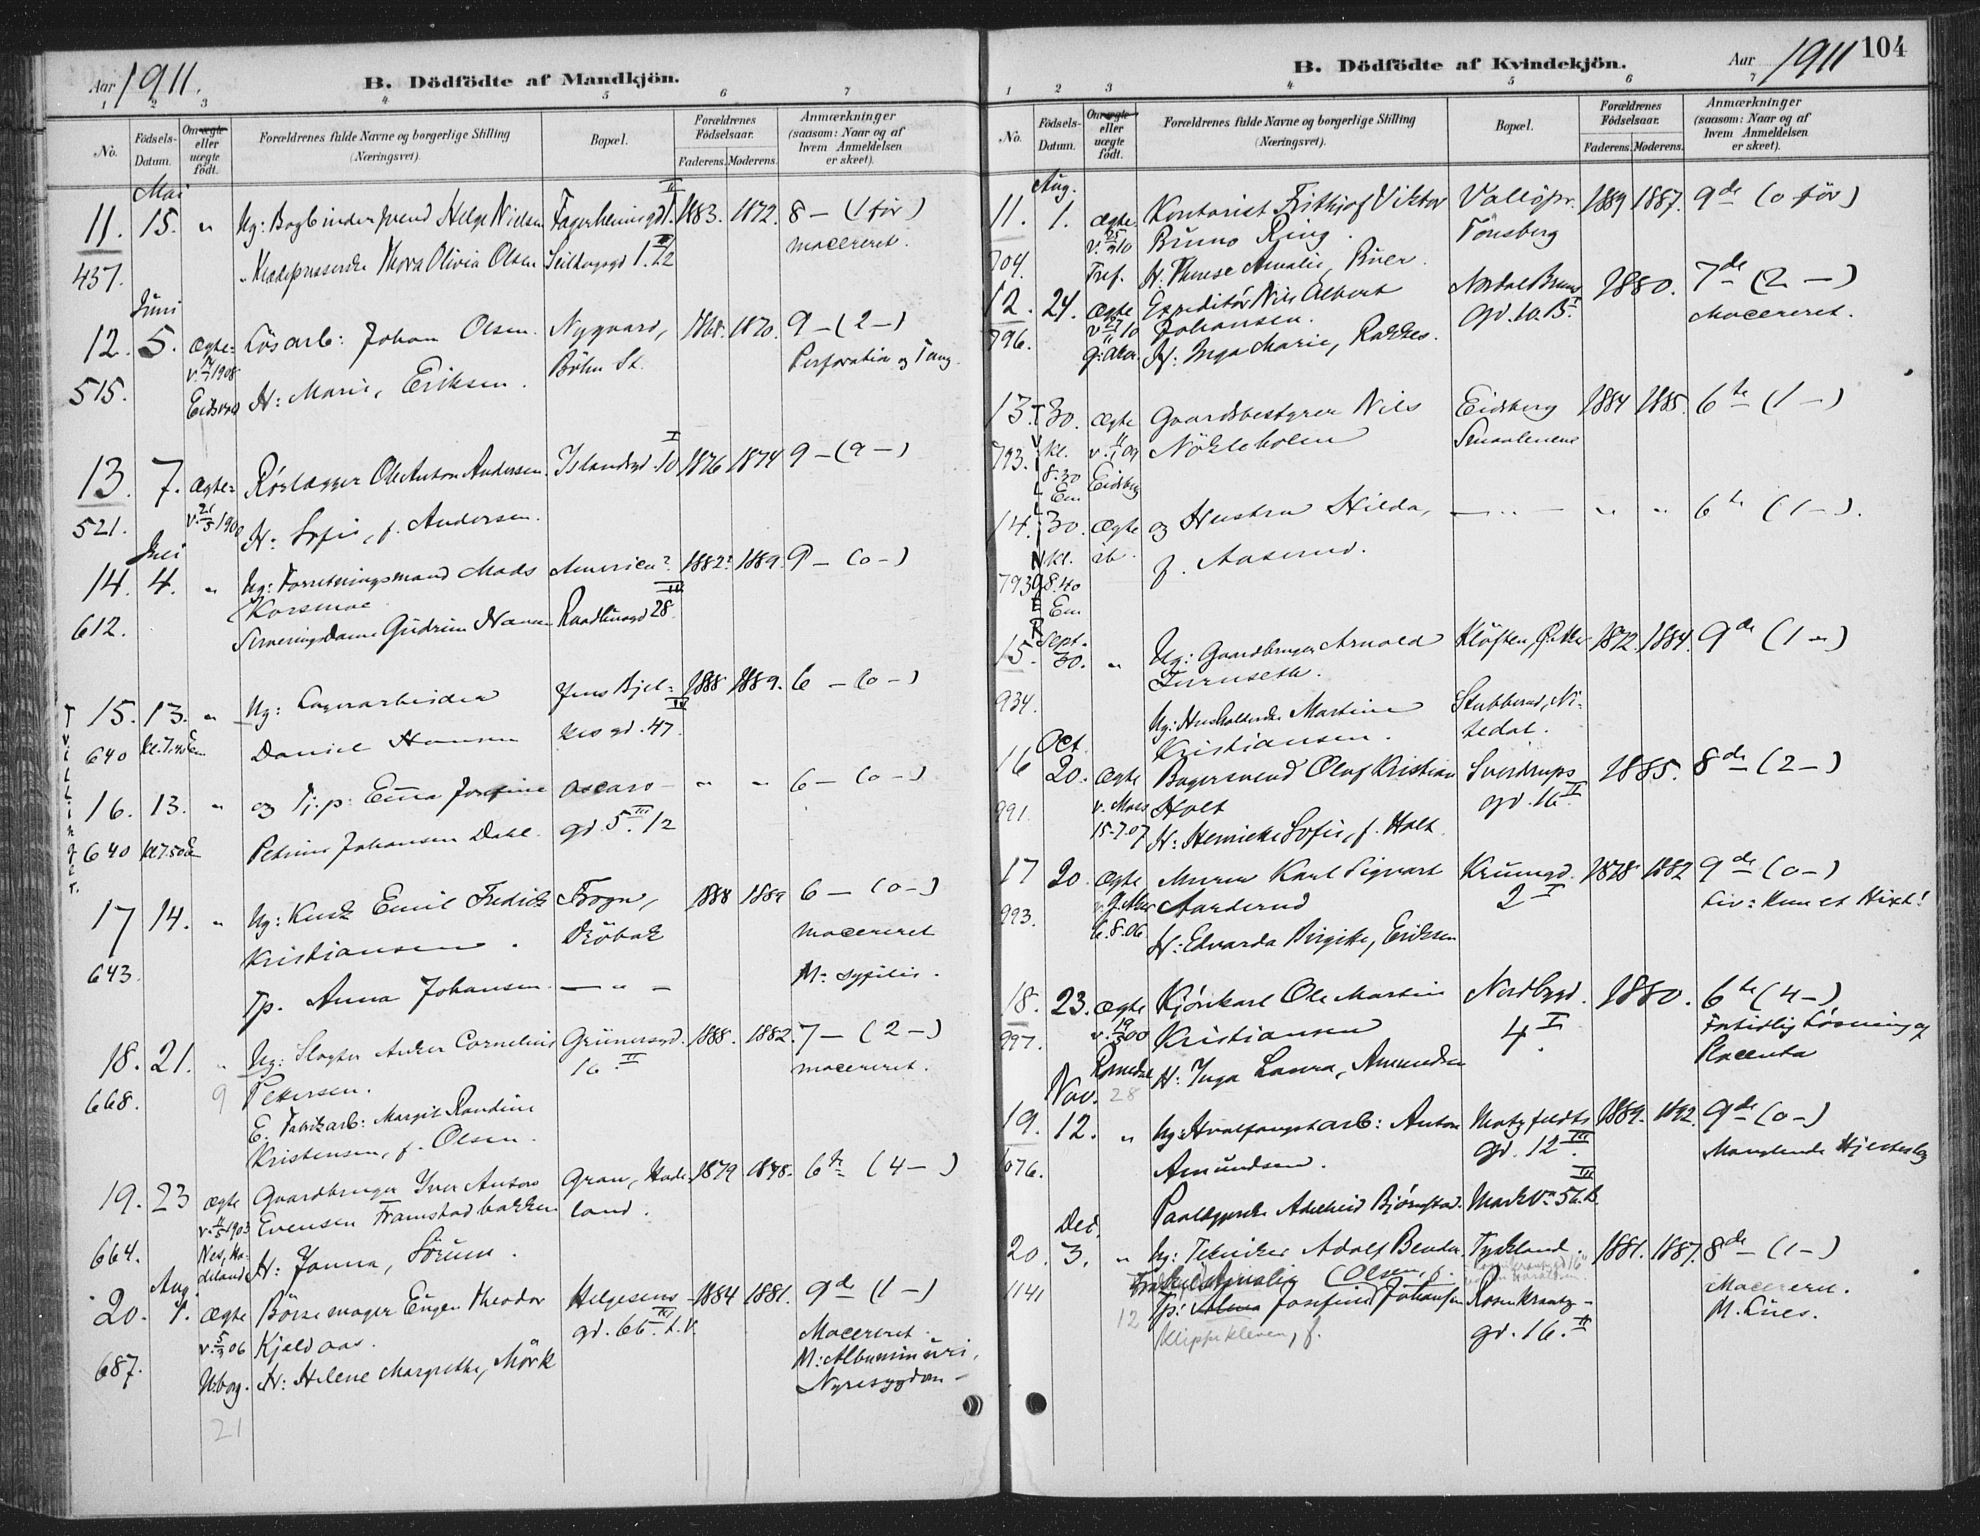 Aar 1911.
B. Dödfödte af Mandkjön.
1 2 3 4 5 6 7
No.
Födsels-Datum.
Om ægte eller uægte födt.
Forældrenes fulde Navne og borgerlige Stilling (Næringsvei).
Bopæl.
Forældrenes Födselsaar.
Faderens. Moderens.
Anmærkninger (saasom: Naar og af hvem Anmeldelsen er skeet).
Mai
11. 15. " Ug: Bogbindersvend Helge Nielsen Fagerheimgd 1. II 1883. 1872. 8 — (1 før)
macereret.
437. Thora Olivia Olsen Seildugsgd
Juni
12. 5. ægte: Løsarb: Johan Olsen. Nygaard, 1868. 1870. 9 — (2 —)
v. 1908 Böhn St. Perforatio og Tang.
515. Eidsvold H: Marie, Eriksen.
13. 7. ægte: Rørlægger Ole Anton Andersen. Islandsgd. 10 I 1876 1874 9 — (9 —)
521. v. 21/5 1900 H: Sofie, f. Andersen.
Juli
14. 4. " Ug: Forretningsmand Mads America? 1882? 1889. 9 — (0 —)
Korsmoe.
612. Serveringsdame Gudrun Hansen Raadhusgd 28. III
Tvillinger.
15. 13. " Ug: Lagerarbeider Jens Bjel- 1888 1889. 6 — (0 —)
640 kl. 7.40 Em Daniel Hansen kes gd. 47. III
16. 13. " og Tj.p: Emma Josefine Oscars — " " 6 — (0 —)
640 kl 7.50 Em Petrine Johansen Dahl. gd. 5 III 1/2
17 14. " Ug: Kusk Emil Fredrik Frogn, 1888 1889 6 — (0 —)
Kristiansen. Dröbak macereret
643. M: syfilis.
Tp. Anna Johansen. — " —
18. 21. " Ug: Slagter Anker Cornelius Grünersgd. 1888. 1882. 7 — (2 —)
9 Petersen. 16 II macereret.
668. E. Fabrikarb: Margit Randine
Kristensen, f. Olsen.
19. 23 ægte Gaardbruger Iver Anton Gran, Hade- 1879 1878. 6te (4 —)
v. 1903 Evensen Framstadbakken land.
664. Nes, Hadeland H: Janna, Sörum.
Aug.
20. 1. ægte Börsemager Eugen Theodor Helgesens 1884 1881. 9de (1 —)
v. 5/3 06 Kjeldaas. gd. 66 IV t.v. Macereret.
687. H: Helene Margrethe, Mörk M: Albuminuri,
Nyresygdom —
21
104
Aar 1911
B. Dödfödte af Kvindekjön.
1 2 3 4 5 6 7
No.
Födsels-Datum.
Om ægte eller uægte födt.
Forældrenes fulde Navne og borgerlige Stilling (Næringsvei).
Bopæl.
Forældrenes Födselsaar.
Faderens. Moderens.
Anmærkninger (saasom: Naar og af hvem Anmeldelsen er skeet).
Aug.
11. 1. ægte Kontorist Frithjof Viktor Vallöpr. 1889 1887. 9de (0 før)
Bruno Ring. Tönsberg
704. Tref. H. Therese Amalie, Buer.
12. 24. ægte Expeditör Nils Albert Nordal Bruns 1880. 7de (2 —)
Johansen. gd. 10. B. I Macereret.
796. H: Inga Marie, Rakkes.
TVILLINGER
13. 30. ægte Gaardsbestyrer Nils Eidsberg 1884 1885. 6te (1 —)
793. kl. 8.30 Em Eidsberg Nökleholm Smaalenene
14. 30. ægte og Hustru Hilda, — " — " " 6te (1 —).
793 kl. 8.40 Em f. Aaserud.
Sept.
15. 30. " Ug: Gaardbruger Arnold Kløften, Ø. 1872. 1884. 9de (1 —)
Furuseth.
934. Ug: Husholderske Martine Stubberud, Ni-
Kristiansen. tedal.
Oct.
16 20. ægte Bagersvend Olaf Kristian Sverdrups 1885. 8de (2 —)
991. v. Moss Holt gd. 16 II
15-7.07 H: Henrikke Sofie, f. Holt.
17 20. ægte Murer Karl Sigvart Krumgd. 1878 1882 9de (0 —)
993. Aarderud 2 I Liv: Kun et Hixt!
6.8.06 H: Edvarda Birgitte, Eriksen
18. 23. ægte Kjørekarl Ole Martin Nordbygd. 1880. 6te (4 —)
997. v. 00 Kristiansen 4 I. Fortidlig Løsning af
Romedal H: Inga Laura, Amundsen Placenta
Nov. 28
19. 12. " Ug: Hvalfangstarb: Anton Motzfeldts 1889. 1892. 9de (0 —)
1076. Amundsen. gd. 12 III Manglende Hjerteslag
Paalæggerske Adelheid Bjørnstad. Markv. 56 b III
Dec.
20. 3. " Ug: Tekniker Adolf Bender Tyskland. 1881. 1887. 8de (1 —)
1141 (Olsen, f. Macereret.
12 Tp: Josefine Johansen Rosenkrantz- M. Lues.
Klippekleven, f. gd. 16. II